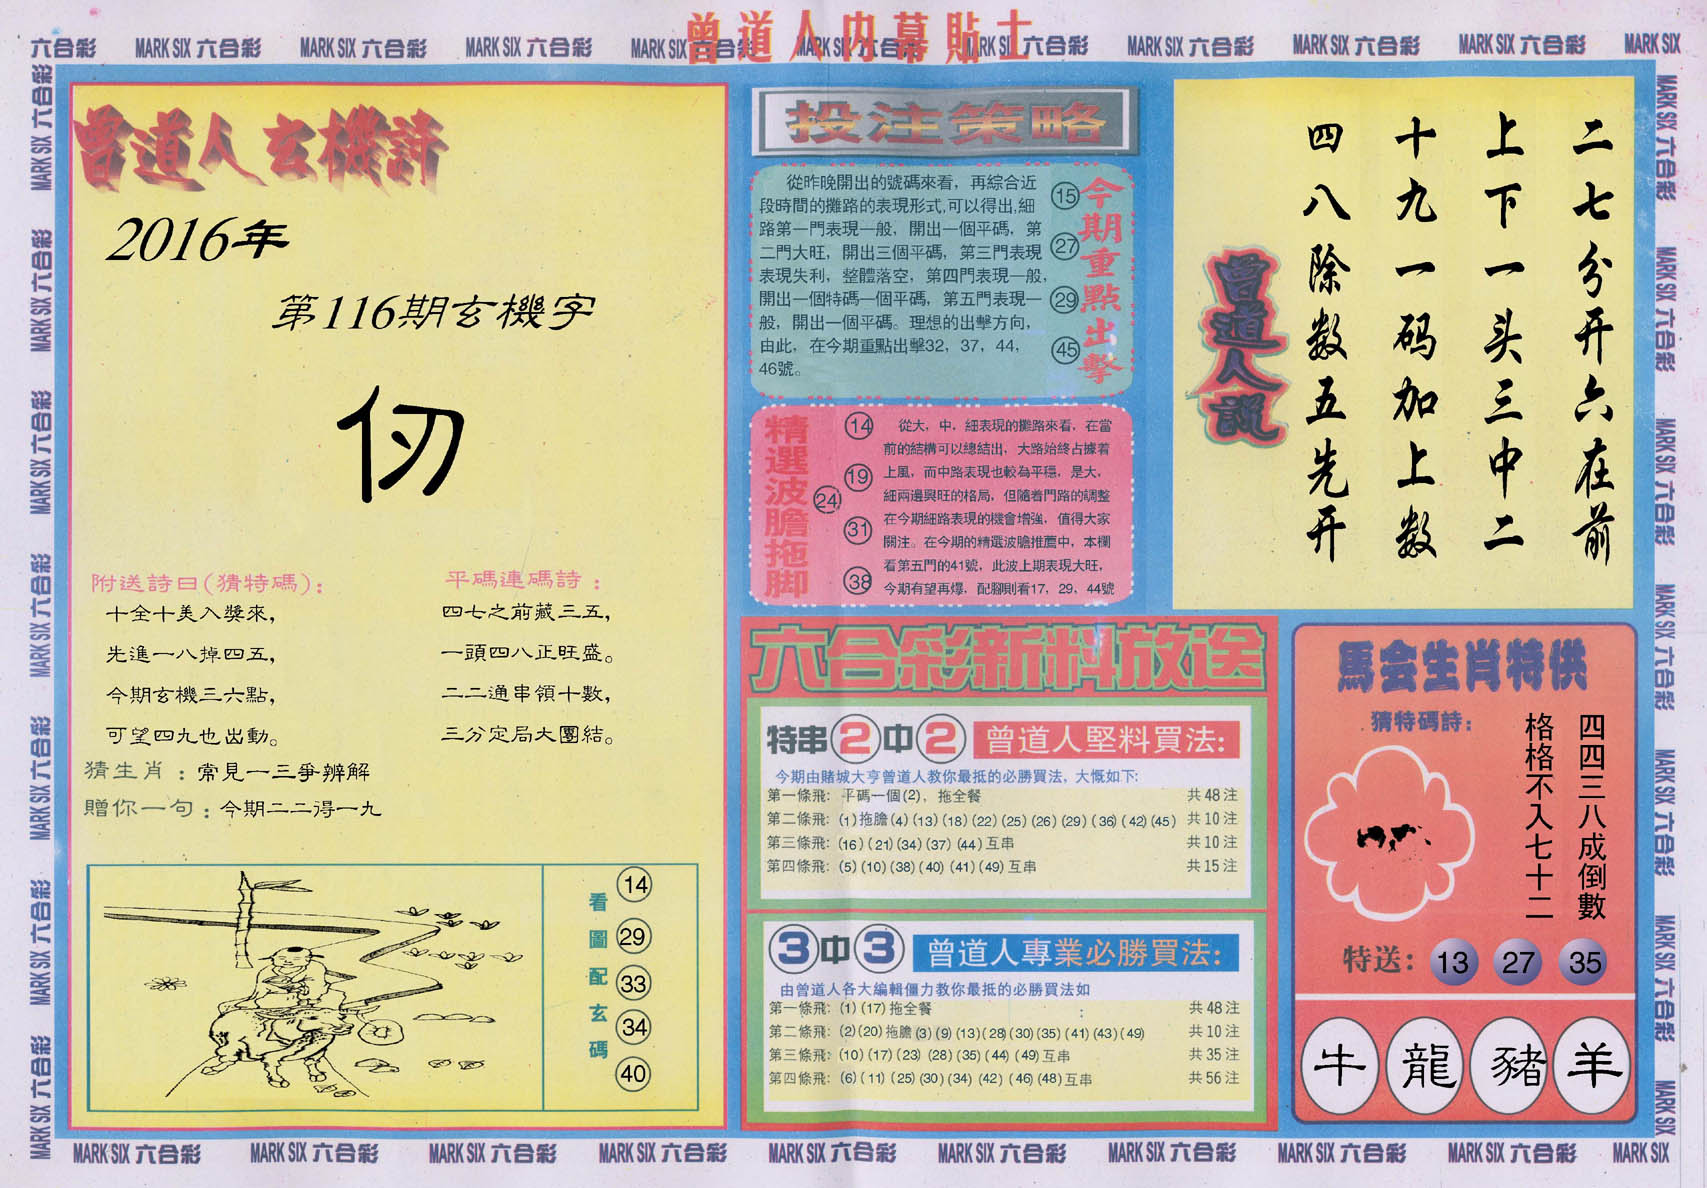 曾道人内幕貼士
六合彩 MARK SIX 六合彩 MARK SIX 六合彩 MARK SIX 六合彩 MARK SIX 六合彩 MARK SIX 六合彩 MARK SIX 六合彩 MARK SIX 六合彩 MARK SIX 六合彩 MARK SIX
曾道人玄機詩
2016年
第116期玄機字
仞
附送詩曰(猜特碼):
十全十美入獎來,
先進一八掉四五,
今期玄機三六點,
可望四九也出動。
平碼連碼詩:
四七之前藏三五,
一頭四八正旺盛。
二二通串領十數,
三分定局大團結。
猜生肖:常見一三爭辨解
贈你一句:今期二二得一九
看圖配玄碼
14
29
33
34
40
投注策略
從昨晚開出的號碼來看，再綜合近
段時間的攤路的表現形式,可以得出,細
路第一門表現一般，開出一個平碼，第
二門大旺，開出三個平碼，第三門表現
表現失利，整體落空，第四門表現一般，
開出一個特碼一個平碼，第五門表現一
般，開出一個平碼。理想的出擊方向，
由此，在今期重點出擊32，37，44，
46號。
15
27
29
45
今期重點出擊
精選波膽拖脚
14
19
24
31
38
從大，中，細表現的攤路來看，在當
前的結構可以總結出，大路始終占據着
上風，而中路表現也較為平穩，是大，
細兩邊興旺的格局，但隨着門路的調整
在今期細路表現的機會增強，值得大家
關注。在今期的精選波膽推薦中，本欄
看第五門的41號，此波上期表現大旺，
今期有望再爆，配腳則看17，29，44號
二七分开六在前
上下一头三中二
十九一码加上数
四八除数五先开
曾道人説
六合彩新料放送
特串2中2 曾道人堅料買法:
今期由賭城大亨曾道人教你最抵的必勝買法，大慨如下:
第一條飛: 平碼一個(2)，拖全餐 共48注
第二條飛: (1)拖膽(4)(13)(18)(22)(25)(26)(29)(36)(42)(45) 共10注
第三條飛: (16)(21)(34)(37)(44)互串 共10注
第四條飛: (5)(10)(38)(40)(41)(49)互串 共15注
3中3 曾道人專業必勝買法:
由曾道人各大編輯僵力教你最抵的必勝買法如
第一條飛: (1)(17)拖全餐 : 共48注
第二條飛: (2)(20)拖膽(3)(9)(13)(28)(30)(35)(41)(43)(49) 共10注
第三條飛: (10)(17)(23)(28)(35)(44)(49)互串 共35注
第四條飛: (6)(11)(25)(30)(34)(42)(46)(48)互串 共56注
馬会生肖特供
猜特碼詩:
四四三八成倒數
格格不入七十二
特送: 13 27 35
牛 龍 豬 羊
MARK SIX 六合彩 MARK SIX 六合彩 MARK SIX 六合彩 MARK SIX 六合彩 MARK SIX 六合彩 MARK SIX 六合彩 MARK SIX 六合彩 MARK SIX 六合彩 MARK SIX 六合彩 MARK SIX